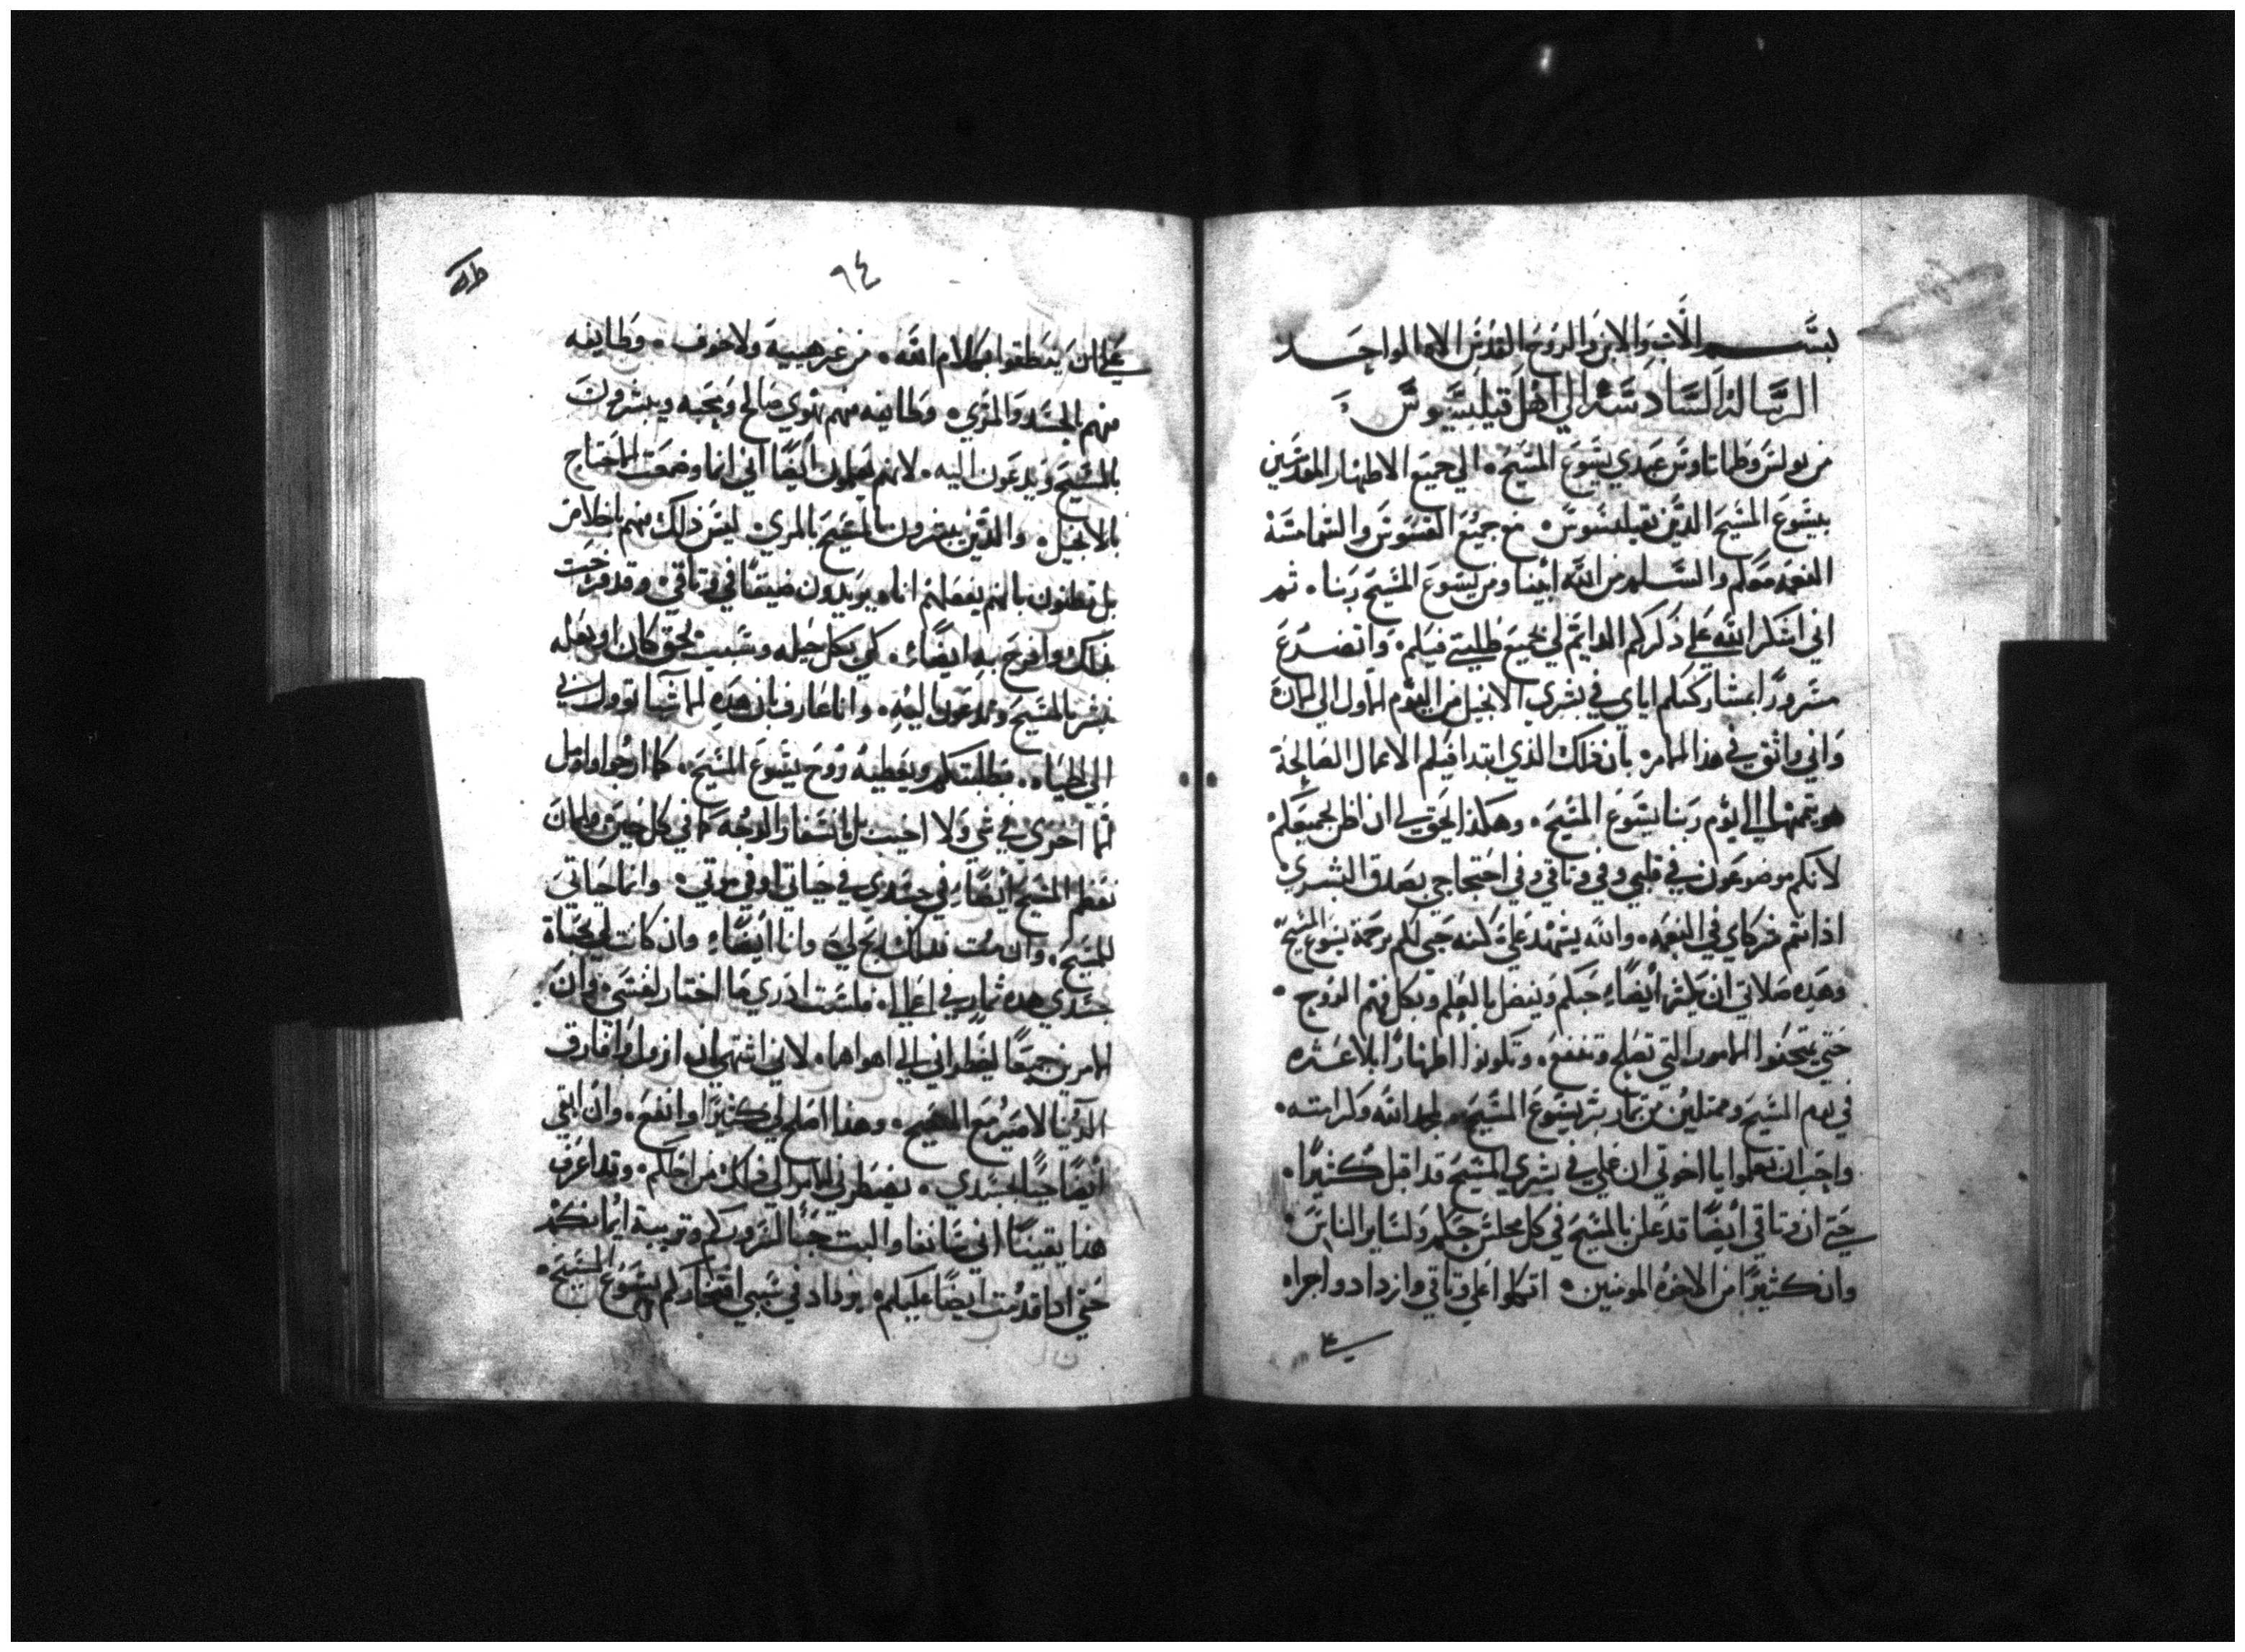 بسم الاب والابن والروح القدس الاه الواحد
الرسالة السادسة الي اهل فيلبسيوس
من بولس وطماتاوس عبدي يسوع المسيح الي جميع الاطهار المقدسين
بيسوع المسيح الذين بفيلبسوس مع جميع القسوس والشمامسة
النعمه معكم والسلم من الله ابينا ومن يسوع المسيح ربنا ثم
اني اشكر الله علي ذكركم الدايم لي جميع طلبتي فيكم واتضرع
مسرورًا بمشاركتكم اياي في بشري الانجيل من اليوم الاول الي الان
واني واثق في هذا الامر بان ذلك الذي ابتدا فيكم الاعمال الصالحة
هو يتمها الي يوم ربنا يسوع المسيح وهكذا يحق لي ان اظن بجميعكم
لانكم موضوعون في قلبي وفي وثاقي وفي احتجاجي بصدق البشري
اذ انتم شركاي في النعمه والله يشهد علي كنه حبي لكم برحمة يسوع المسيح
وهذه صلاتي ان يكثر ايضًا حبكم ويفضل بالعلم وبكل فهم الروح
حتي تمتحنوا الامور التي تصلح وتنفع وتكونوا اطهارًا بلا عثره
في يوم المسيح وممتليين من ثمار بر يسوع المسيح لمجد الله وكرامته
واحب ان تعلموا يا اخوتي ان عملي في بشري المسيح قد اقبل كثيرًا
حتي ان وثاقي ايضًا قد علن بالمسيح في كل مجلس حكم ولساير الناس
وان كثيرًا من الاخوة المومنين اتكلوا علي وثاقي وازدادوا جراه
٩٤
علي ان ينطقوا بكلام الله من غير هيبة ولا خوف وطايفه
منهم بالحسد والمري وطايفه منهم بهوي صالح ومحبه ويبشرون
بالمسيح ويدعون اليه لانهم يعلمون ايضًا اني انما وضعت للاحتياج
بالانجيل والذين يبشرون بالمسيح بالمري ليس ذلك منهم باخلاص
بل يظنون بانهم بفعلهم انما يريدون ضيقًا في وثاقي وقد فرحت
بذلك وافرح به ايضًا كي بكل حيله وسبب بحق كان او بعله
يبشر بالمسيح ويدعون اليه وانا عارف بان هذه الاشيا تؤول بي
الي الحياه بطلبتكم وبعطيه روح يسوع المسيح كما ارجوا واومل
لا اخزي في شي ولا اخيب بل وجه كما في كل حين والان
نعظم المسيح ايضًا في جسدي في حياتي او في موتي وانما حياتي
المسيح وان مت فذلك ربح لي وانا ايضًا وان كانت لي بحياة
جسدي هذه ثمار في اعمالي فلست ادري ما اختار لنفسي وان
الامرين جميعًا ليضطراني الي اهواهما لاني اشتهي ان ازول وافارق
الدنيا لاصير مع المسيح وهذا اصلح لي كثيرًا وانفع وان ابقي
ايضًا حيًا بجسدي يضطرني الامر الي ذلك من اجلكم وقد اعرف
هذا يقينًا اني سابقا والبث حيًا لسروركم وتربية ايمانكم
حتي اذا قدمت ايضًا عليكم يزداد في سببي افتخاركم بيسوع المسيح